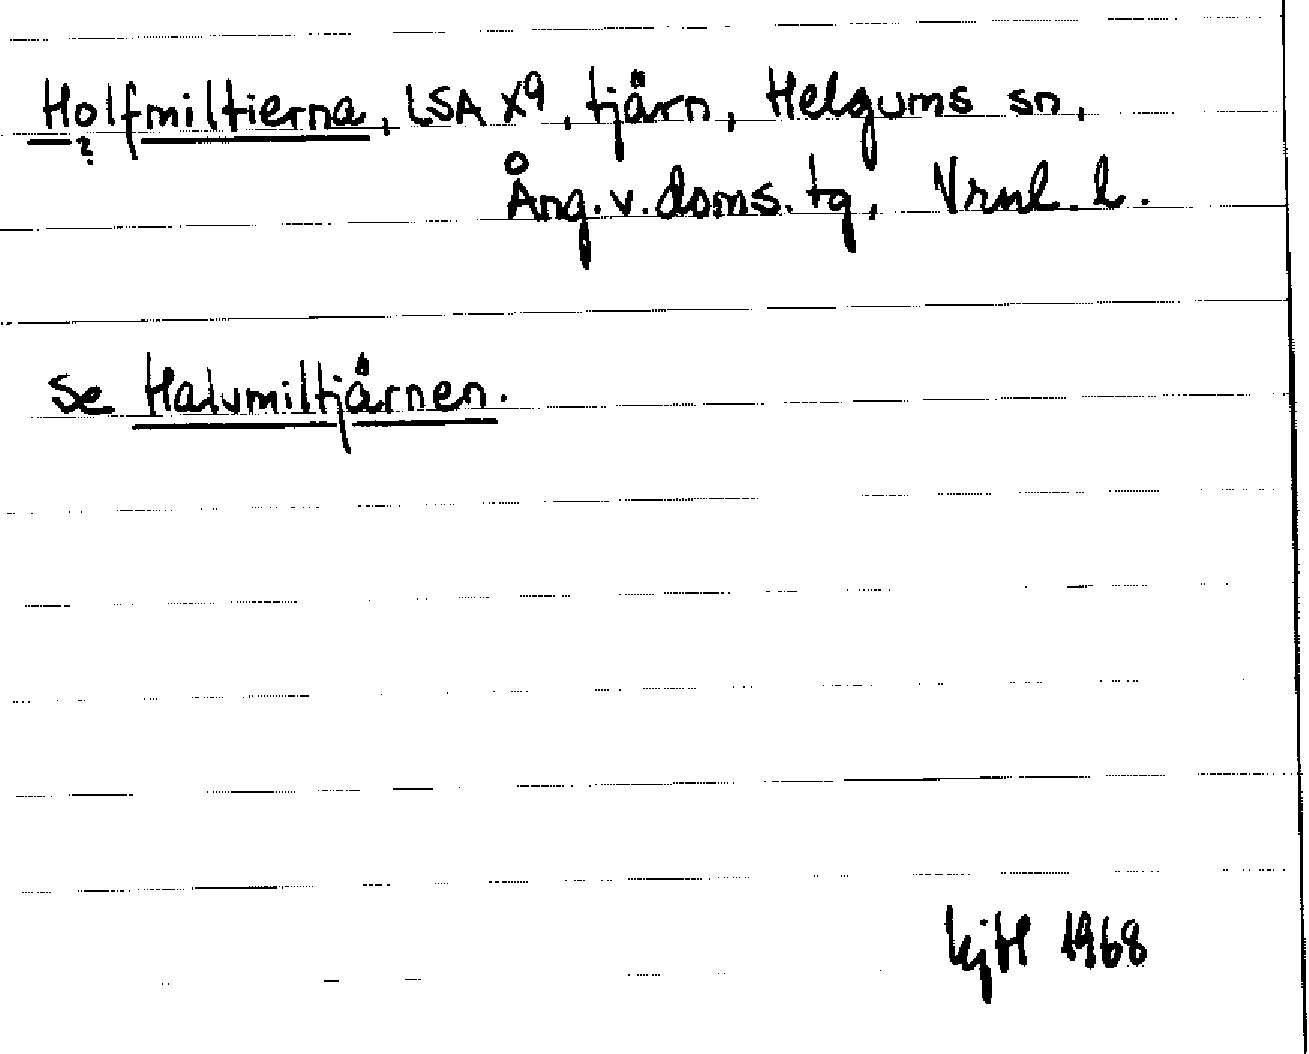 Holfmiltierna, LSA X9, tjärn, Helgums sn,
?
Ång. v. doms. tg, Vrnl. l.
Se Halvmiltjärnen.
KjH 1968